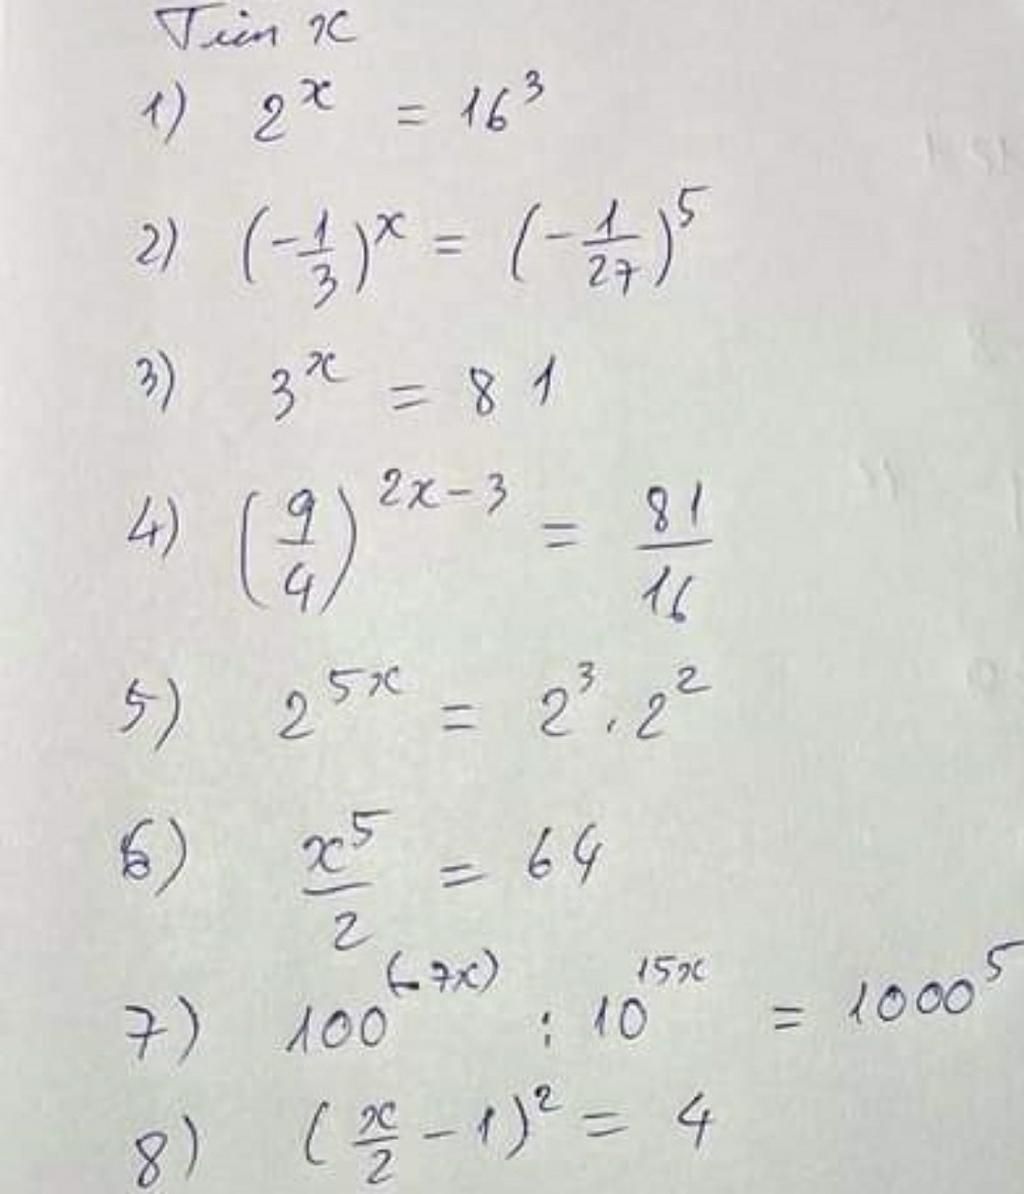 Tìm x
1) 2^x = 16^3
2) (-1/3)^x = (-1/27)^5
3) 3^x = 81
4) (9/4)^(2x-3) = 81/16
5) 2^5x = 2^3 . 2^2
6) x^5/2 = 64
7) 100^(-7x) : 10^15x = 1000^5
8) (x/2 - 1)^2 = 4